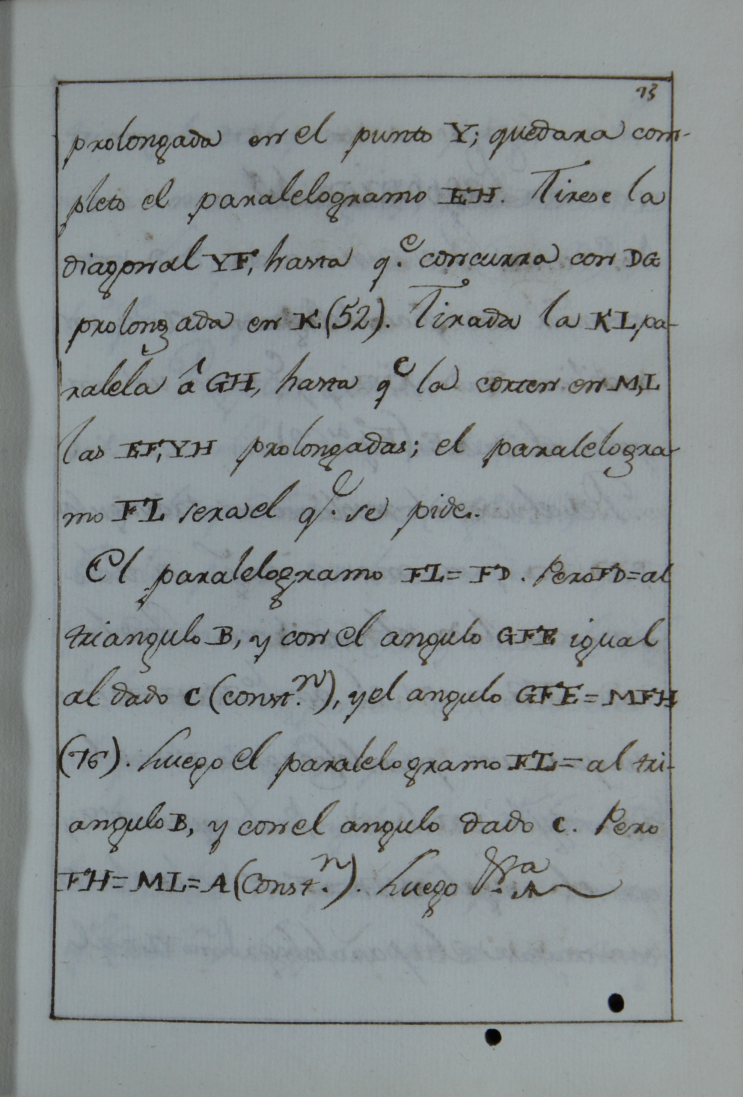 13
prolongada en el punto Y; quedara com-
pleto el paralelogramo EH. Tirese la
diagonal YF, hasta q.e concurra con DG
prolongada en K (52). Tirada la KL pa-
ralela â GH, hasta q.e la corten en M, L
las EF, YH prolongadas; el paralelogra-
mo FL sera el q.e se pide.
El paralelogramo FL = FD. Pero FD = al
triangulo B, y con el angulo GFE igual
al dado C (const.n), y el angulo GFE = MFH
(76). Luego el paralelogramo FL = al tri-
angulo B, y con el angulo dado C. Pero
FH = ML = A (Const.n). Luego